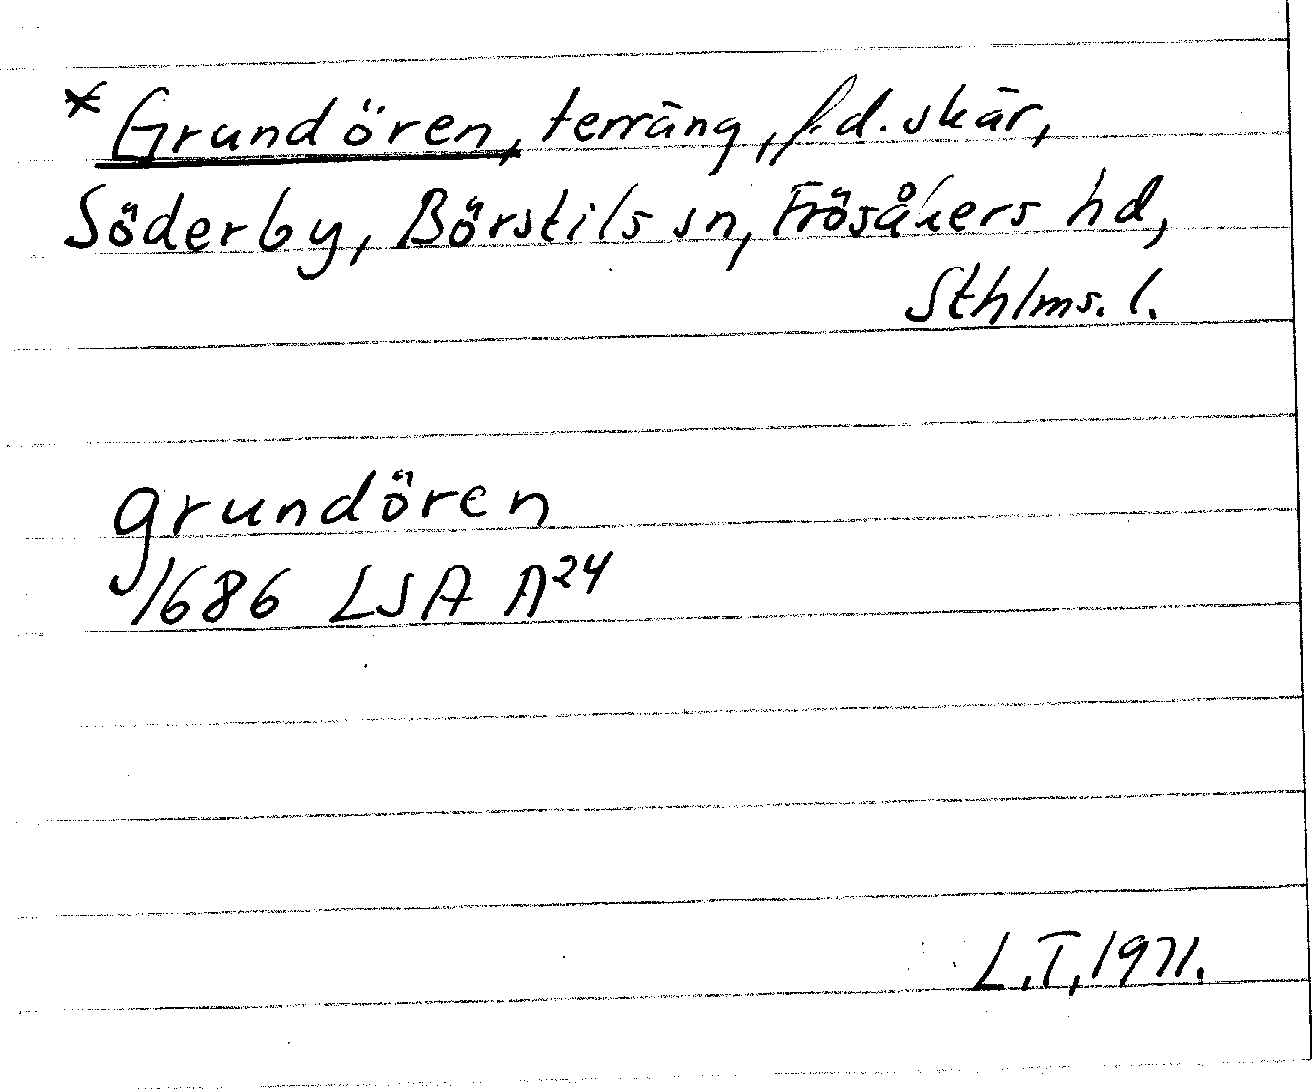 * Grundören, terräng, f.d. skär,
Söderby, Börstils sn, Frösåkers hd,
Sthlms. l.
grundören
1686 LSA A24
L.T, 1971.